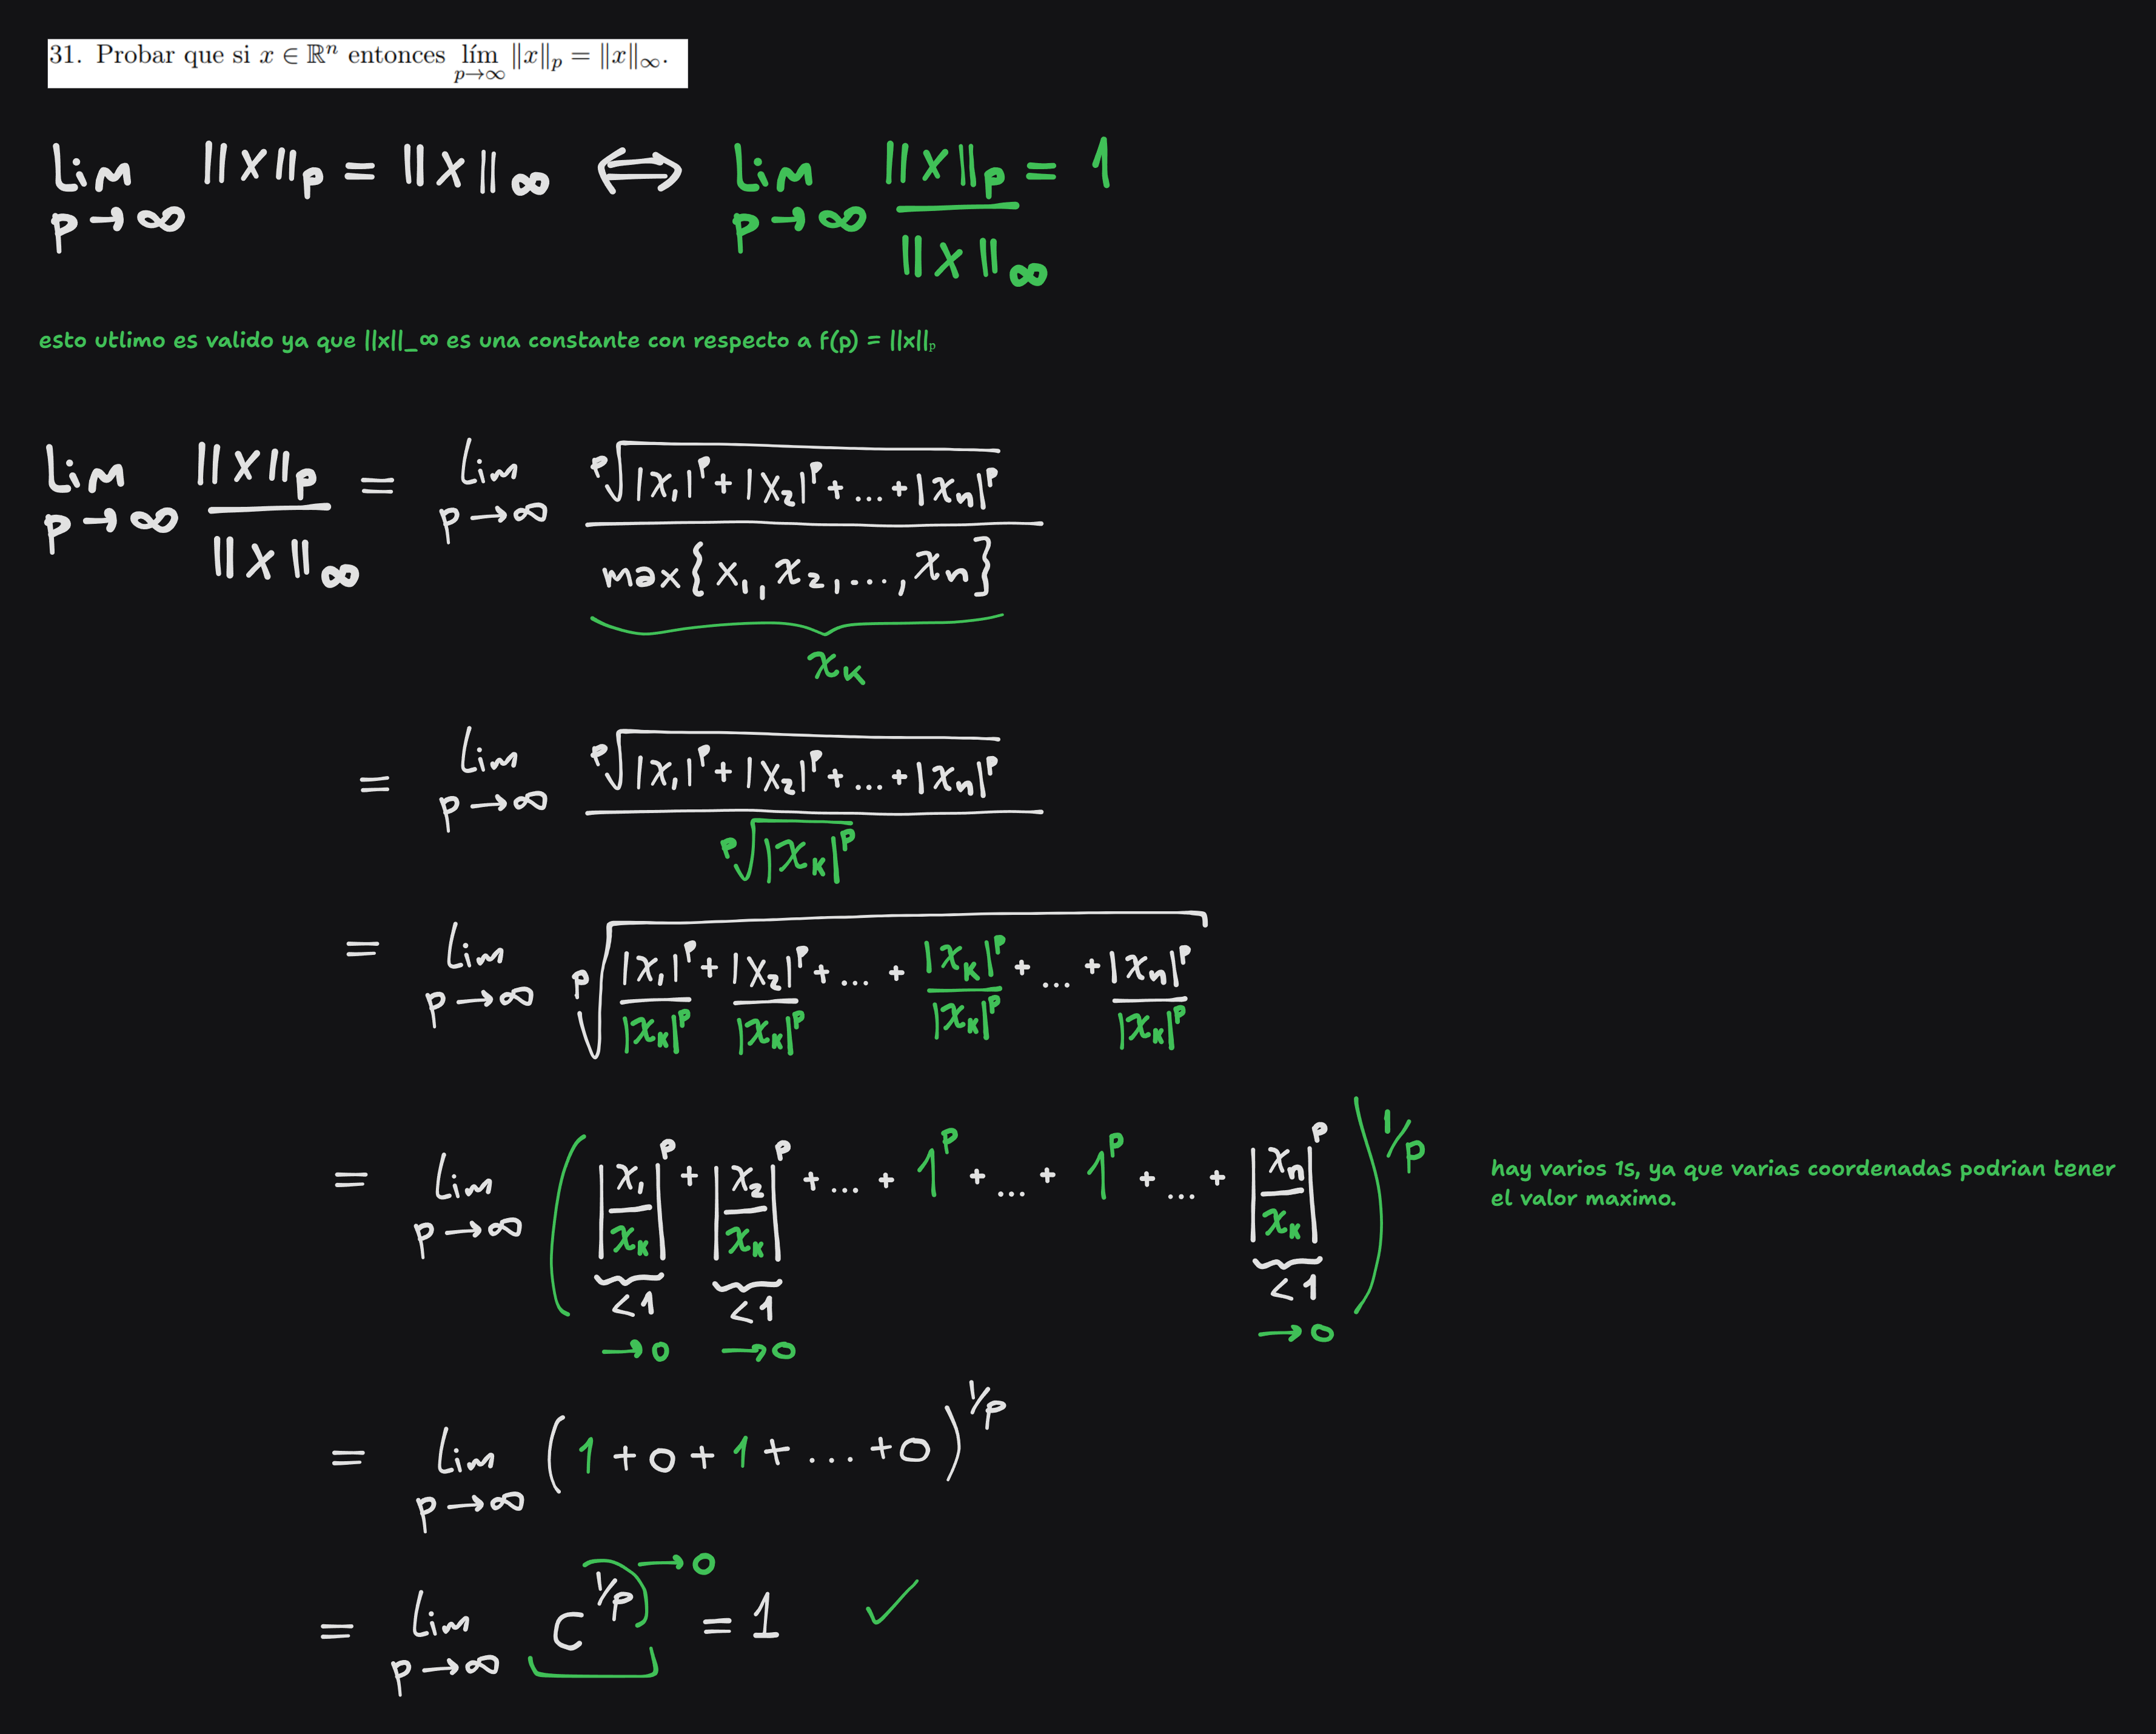 31. Probar que si x ∈ ℝⁿ entonces lím_{p→∞} ‖x‖_p = ‖x‖_∞.
Lim_{p→∞} ||x||_p = ||x||_∞ ⟺ Lim_{p→∞} ||x||_p / ||x||_∞ = 1
esto utlimo es valido ya que ||x||_∞ es una constante con respecto a f(p) = ||x||ₚ
Lim_{p→∞} ||x||_p / ||x||_∞ = Lim_{p→∞} ᵖ√(|x₁|^p + |x₂|^p + ... + |xₙ|^p) / max{x₁, x₂, ..., xₙ}
x_k
= Lim_{p→∞} ᵖ√(|x₁|^p + |x₂|^p + ... + |xₙ|^p) / ᵖ√(|x_k|^p)
= Lim_{p→∞} ᵖ√(|x₁|^p/|x_k|^p + |x₂|^p/|x_k|^p + ... + |x_k|^p/|x_k|^p + ... + |xₙ|^p/|x_k|^p)
= Lim_{p→∞} (|x₁/x_k|^p + |x₂/x_k|^p + ... + 1^p + ... + 1^p + ... + |xₙ/x_k|^p)^{1/p}
<1 <1 <1
→0 →0 →0
hay varios 1s, ya que varias coordenadas podrian tener
el valor maximo.
= Lim_{p→∞} (1 + 0 + 1 + ... + 0)^{1/p}
= Lim_{p→∞} C^{1/p} →0 = 1 ✓